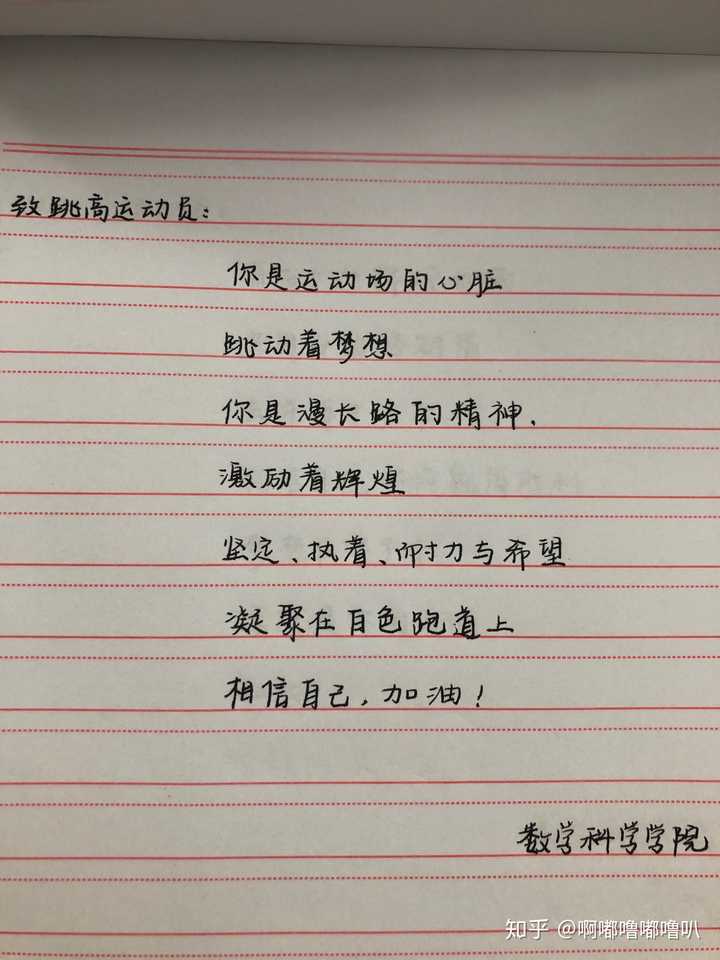 致跳高运动员：
你是运动场的心脏
跳动着梦想
你是漫长路的精神，
激励着辉煌
坚定、执着、耐力与希望
凝聚在百色跑道上
相信自己，加油！
数学科学学院
知乎 @啊嘟噜嘟噜叭